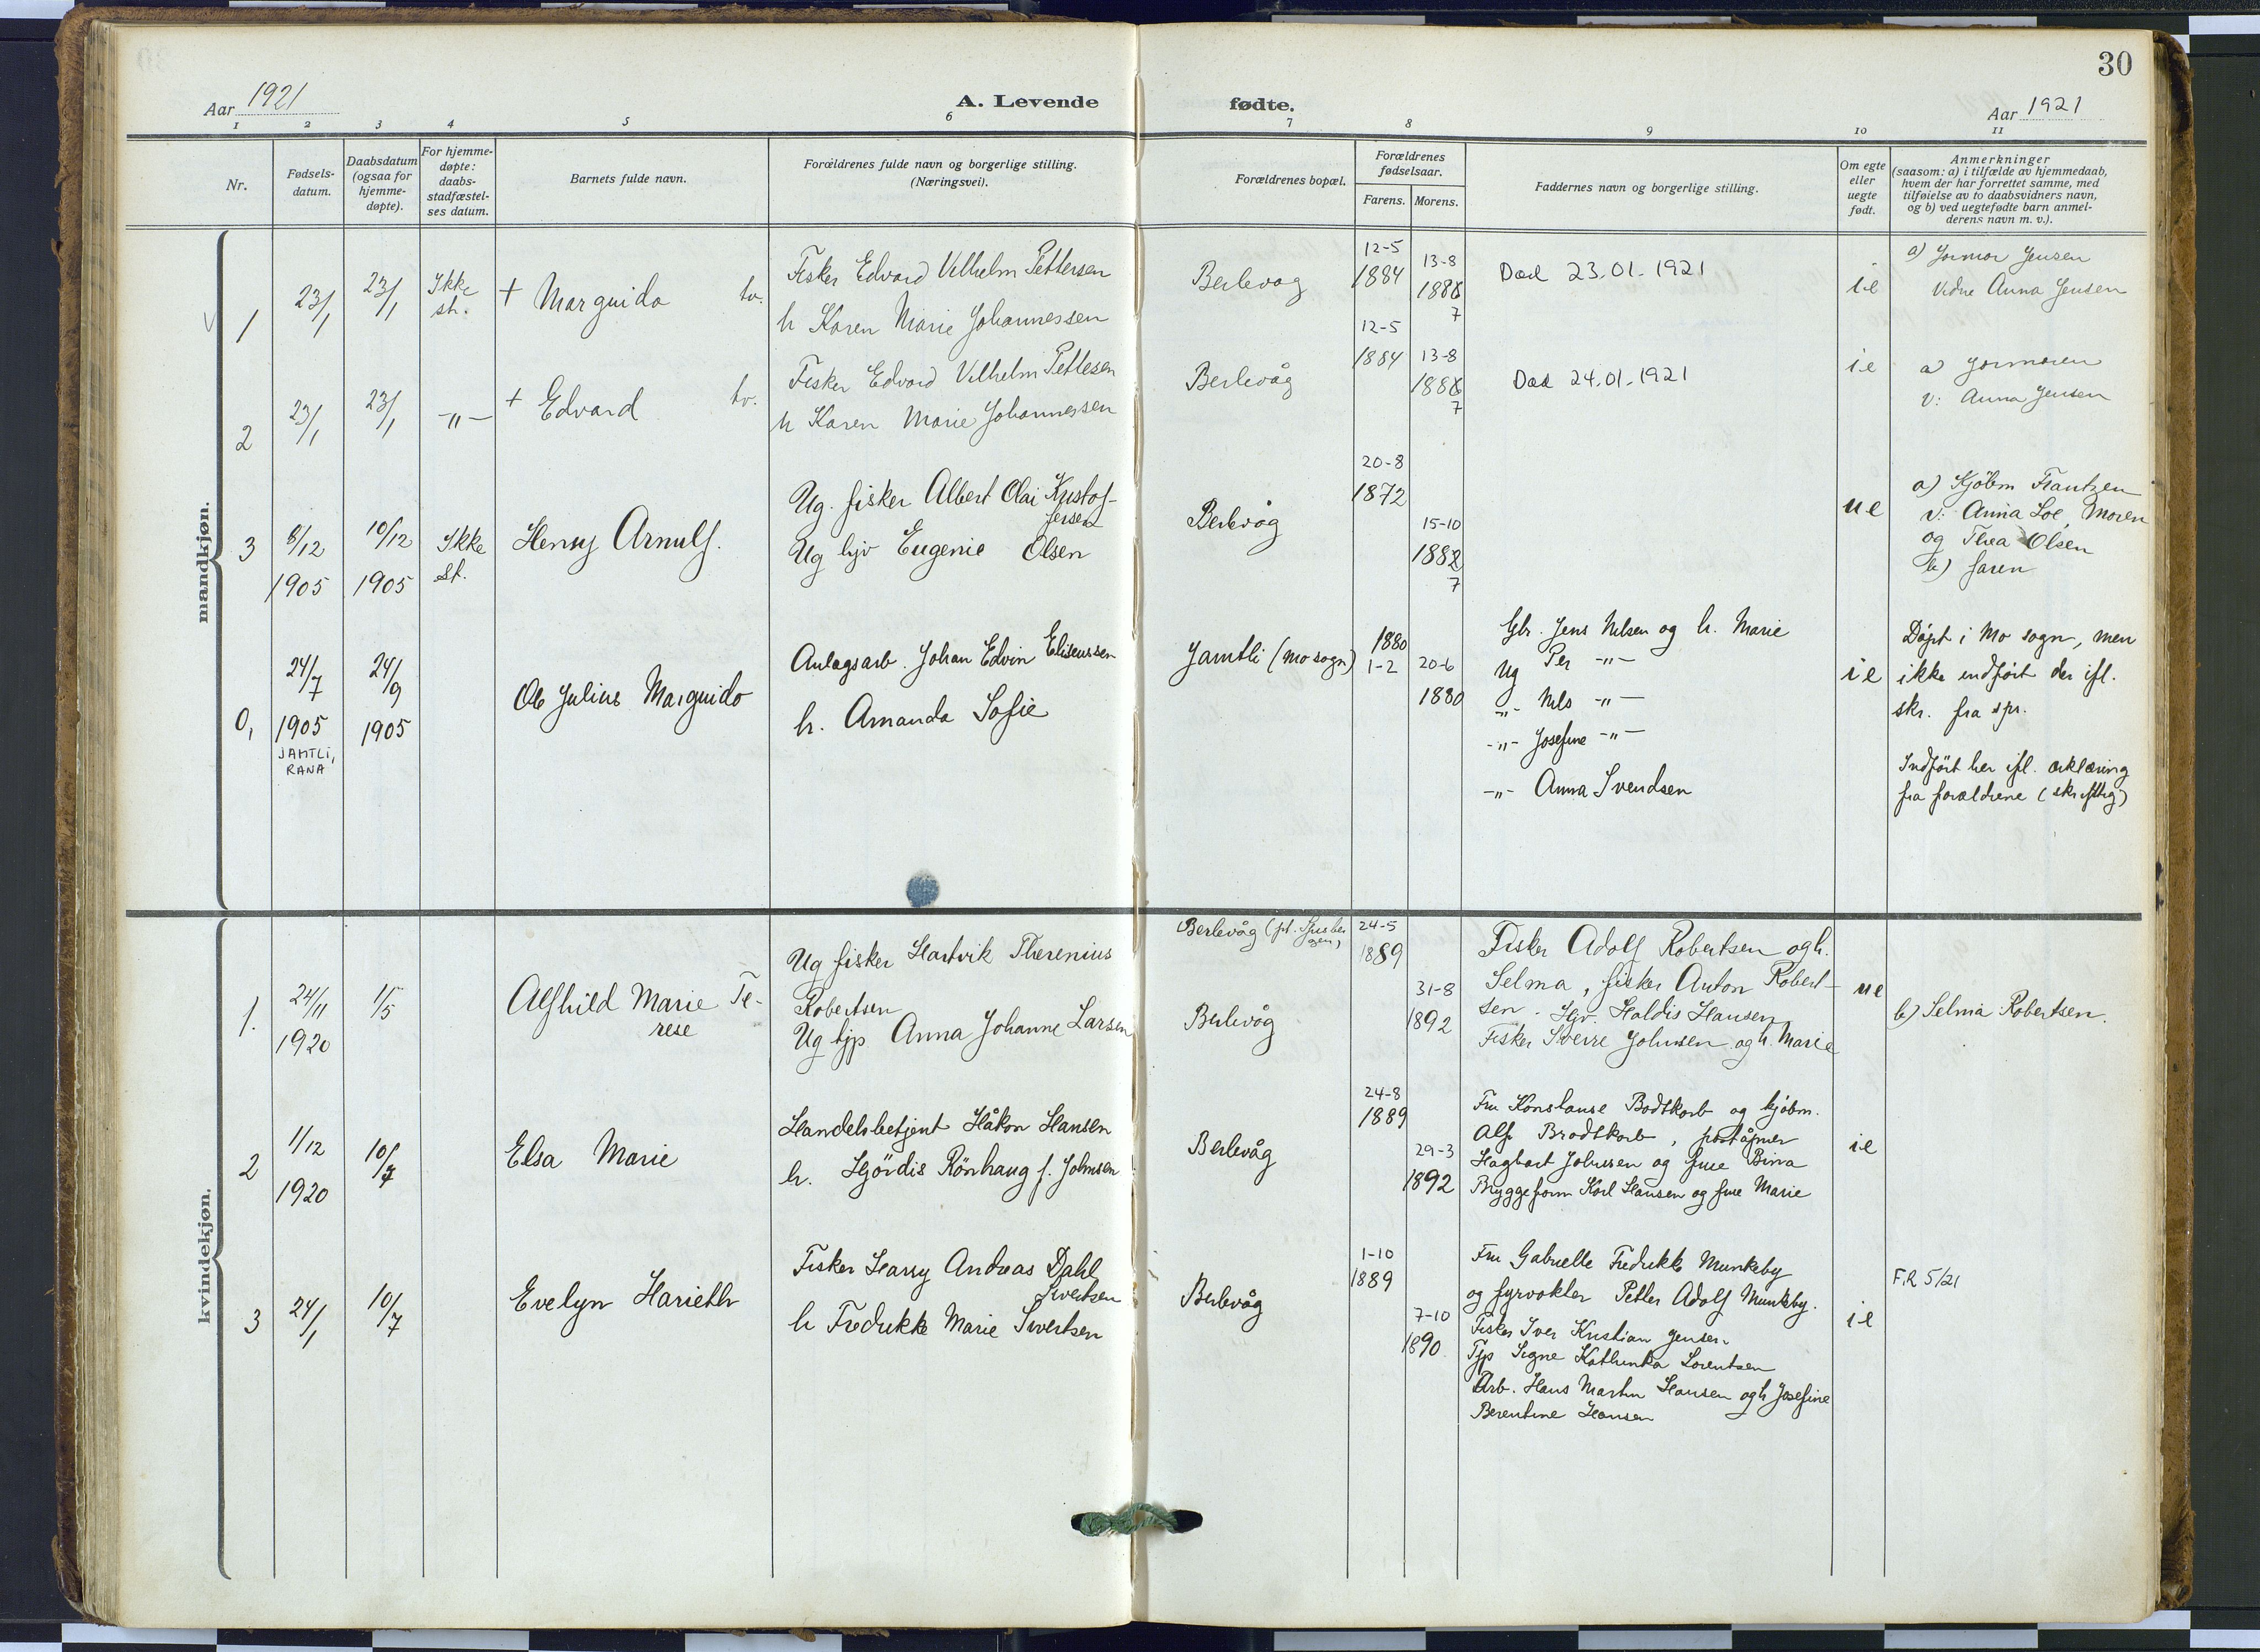 30
Aar 1921
A. Levende
fødte.
Aar 1921
1 2 3 4 5 6 7 8 9 10 11
Nr.
Fødsels-
datum.
Daabsdatum
(ogsaa for
hjemme-
døpte).
For hjemme-
døpte:
daabs-
stadfæstel-
ses datum.
Barnets fulde navn.
Forældrenes fulde navn og borgerlige stilling.
(Næringsvei).
Forældrenes bopæl.
Forældrenes
fødselsaar.
Farens.
Morens.
Faddernes navn og borgerlige stilling.
Om egte
eller
uegte
født.
Anmerkninger
(saasom: a) i tilfælde av hjemmedaab,
hvem der har forrettet samme, med
tilføielse av to daabsvidners navn,
og b) ved uegtefødte barn anmel-
derens navn m. v.).
mandkjøn.
1
23/1
23/1
Ikke
st.
+ Marguido tv.
Fisker Edvard Vilhelm Pettersen
h Karen Marie Johannessen
Berlevåg
12-5
1884
13-8
1888
7
Død 23.01.1921
ie
a) Jormor Jensen
Vidne Anna Jensen
2
23/1
23/1
-"-
+ Edvard tv.
Fisker Edvard Vilhelm Pettesen
h Karen Marie Johannessen
Berlevåg
12-5
1884
13-8
1888
7
Død 24.01.1921
ie
a) Jormoren
v: Anna Jensen
3
8/12
1905
10/12
1905
Ikke
st.
Henry Arnulf.
Ug. fisker Albert Olai Kristof-
fersen
Ug hjv Eugenie Olsen
Berlevåg
20-8
1872
15-10
1882
7
ue
a) Kjöbm Frantzen
v: Anna Loe, Moren
og Thea Olsen
b) faren
0,
24/7
1905
JAMTLI,
RANA
24/9
1905
Ole Julius Marguido
Anlagsarb. Johan Edvin Eliseussen
h. Amanda Sofie
Jamtli (Mo sogn)
1880
1-2
20-6
1880
Gbr. Jens Nilsen og h. Marie
Ug Per -"-
-"- Nils -"-
-"- Josefine -"-
-"- Anna Svendsen
ie
Döpt i Mo sogn, men
ikke indfört der ifl.
skr. fra spr.
Indfört her ifl. erklæring
fra forældrene (skriftlig)
kvindekjøn.
1.
24/11
1920
1/5
Alfhild Marie Te-
rese
Ug fisker Hartvik Therenius
Robertsen
Ug tjp Anna Johanne Larsen
Berlevåg
Berlevåg
24-5
1889
31-8
1892
Fisker Adolf Robertsen og h.
Selma, fisker Anton Robert-
sen. Hjv. Haldis Hansen
Fisker Sverre Johnsen og h. Marie
ue
b) Selma Robertsen.
2
1/12
1920
10/7
Elsa Marie
Handelsbetjent Håkon Hansen
h. Hjördis Rönhaug f. Johnsen
Berlevåg
24-8
1889
29-3
1892
Fru Konstanse Bodtkorb og kjöbm.
Alf Brodtkorb, poståpner
Hagbart Johnsen og frue Birra
Bryggeform Karl Hansen og frue Marie
ie
3
24/1
10/7
Evelyn Harieth
Fisker Harry Andreas Dahl
Sivertsen
h Fredrikke Marie Sivertsen
Berlevåg
1-10
1889
7-10
1890.
Fru Gabrielle Fredrikke Munkeby
og fyrvokter Petter Adolf Munkeby.
Fisker Iver Kristian Jensen
Tjp Signe Kathinka Lorentsen
Arb. Hans Martin Hansen og h Josefine
Berentine Hansen
ie
F.R 5/21